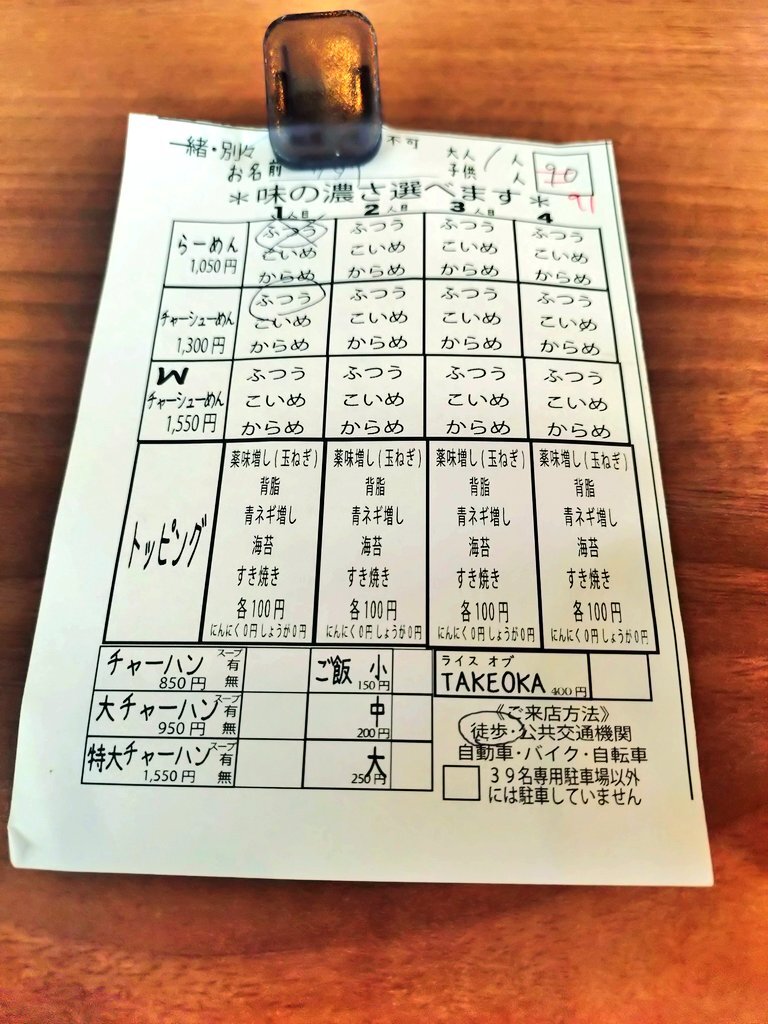 一緒・別々 不可 大人 / 人
お名前 子供 人 90
91
＊味の濃さ選べます＊
1人目 2人目 3人目 4
らーめん 1,050円
ふつう ふつう ふつう ふつう
こいめ こいめ こいめ こいめ
からめ からめ からめ からめ
チャーシューめん 1,300円
ふつう ふつう ふつう ふつう
こいめ こいめ こいめ こいめ
からめ からめ からめ からめ
W チャーシューめん 1,550円
ふつう ふつう ふつう ふつう
こいめ こいめ こいめ こいめ
からめ からめ からめ からめ
トッピング
薬味増し(玉ねぎ) 薬味増し(玉ねぎ) 薬味増し(玉ねぎ) 薬味増し(玉ねぎ)
背脂 背脂 背脂 背脂
青ネギ増し 青ネギ増し 青ネギ増し 青ネギ増し
海苔 海苔 海苔 海苔
すき焼き すき焼き すき焼き すき焼き
各100円 各100円 各100円 各100円
にんにく0円しょうが0円 にんにく0円しょうが0円 にんにく0円しょうが0円 にんにく0円しょうが0円
チャーハン 850円 スープ 有 無
ご飯 小 150円
ライス オブ
TAKEOKA 400円
大チャーハン 950円 スープ 有 無
中 200円
特大チャーハン 1,550円 スープ 有 無
大 250円
《ご来店方法》
徒歩・公共交通機関
自動車・バイク・自転車
39名専用駐車場以外
には駐車していません